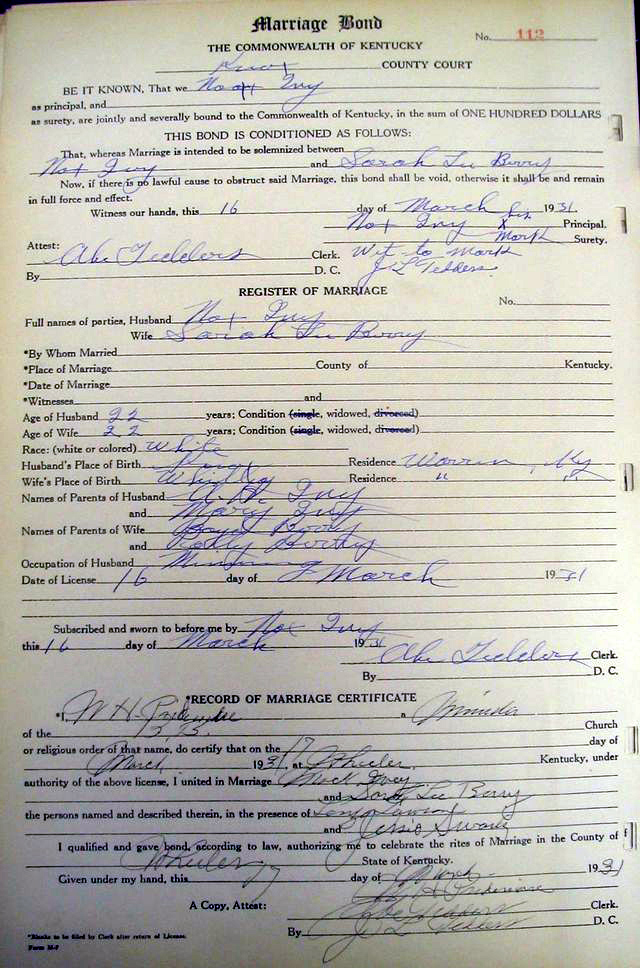 Marriage Bond
No. 112
THE COMMONWEALTH OF KENTUCKY
Knox COUNTY COURT
BE IT KNOWN, That we Nox Ivy
as principal, and
as surety, are jointly and severally bound to the Commonwealth of Kentucky, in the sum of ONE HUNDRED DOLLARS
THIS BOND IS CONDITIONED AS FOLLOWS:
That, whereas Marriage is intended to be solemnized between
Nox Ivy and Sarah Lee Berry
Now, if there is no lawful cause to obstruct said Marriage, this bond shall be void, otherwise it shall be and remain
in full force and effect.
Witness our hands, this 16 day of March 1931.
Nox Ivy X his mark Principal.
Surety.
Attest:
Clerk. Wit to mark
By D. C. J L Tedders
REGISTER OF MARRIAGE
No.
Full names of parties, Husband Nox Ivy
Wife Sarah Lee Berry
*By Whom Married
*Place of Marriage County of Kentucky.
*Date of Marriage
*Witnesses and
Age of Husband 22 years; Condition (single, widowed, divorced)
Age of Wife 22 years; Condition (single, widowed, divorced)
Race: (white or colored) White
Husband's Place of Birth Residence Warren, Ky
Wife's Place of Birth Residence " "
Names of Parents of Husband Ivy
and Mary Ivy
Names of Parents of Wife Berry
and
Occupation of Husband Mining
Date of License 16 day of March 1931
Subscribed and sworn to before me by Nox Ivy
this 16 day of March 1931
Abe Tedders Clerk.
By D. C.
*RECORD OF MARRIAGE CERTIFICATE
*I, W H a Minister
of the Church
or religious order of that name, do certify that on the 17 day of
March 1931, at Wheeler Kentucky, under
authority of the above license, I united in Marriage
and Sarah Lee Berry
the persons named and described therein, in the presence of
and
I qualified and gave bond, according to law, authorizing me to celebrate the rites of Marriage in the County of
State of Kentucky.
Given under my hand, this 17 day of March 1931
A Copy, Attest: Abe Tedders Clerk.
By J L Tedders D. C.
*Blanks to be filled by Clerk after return of License.
Form M-7